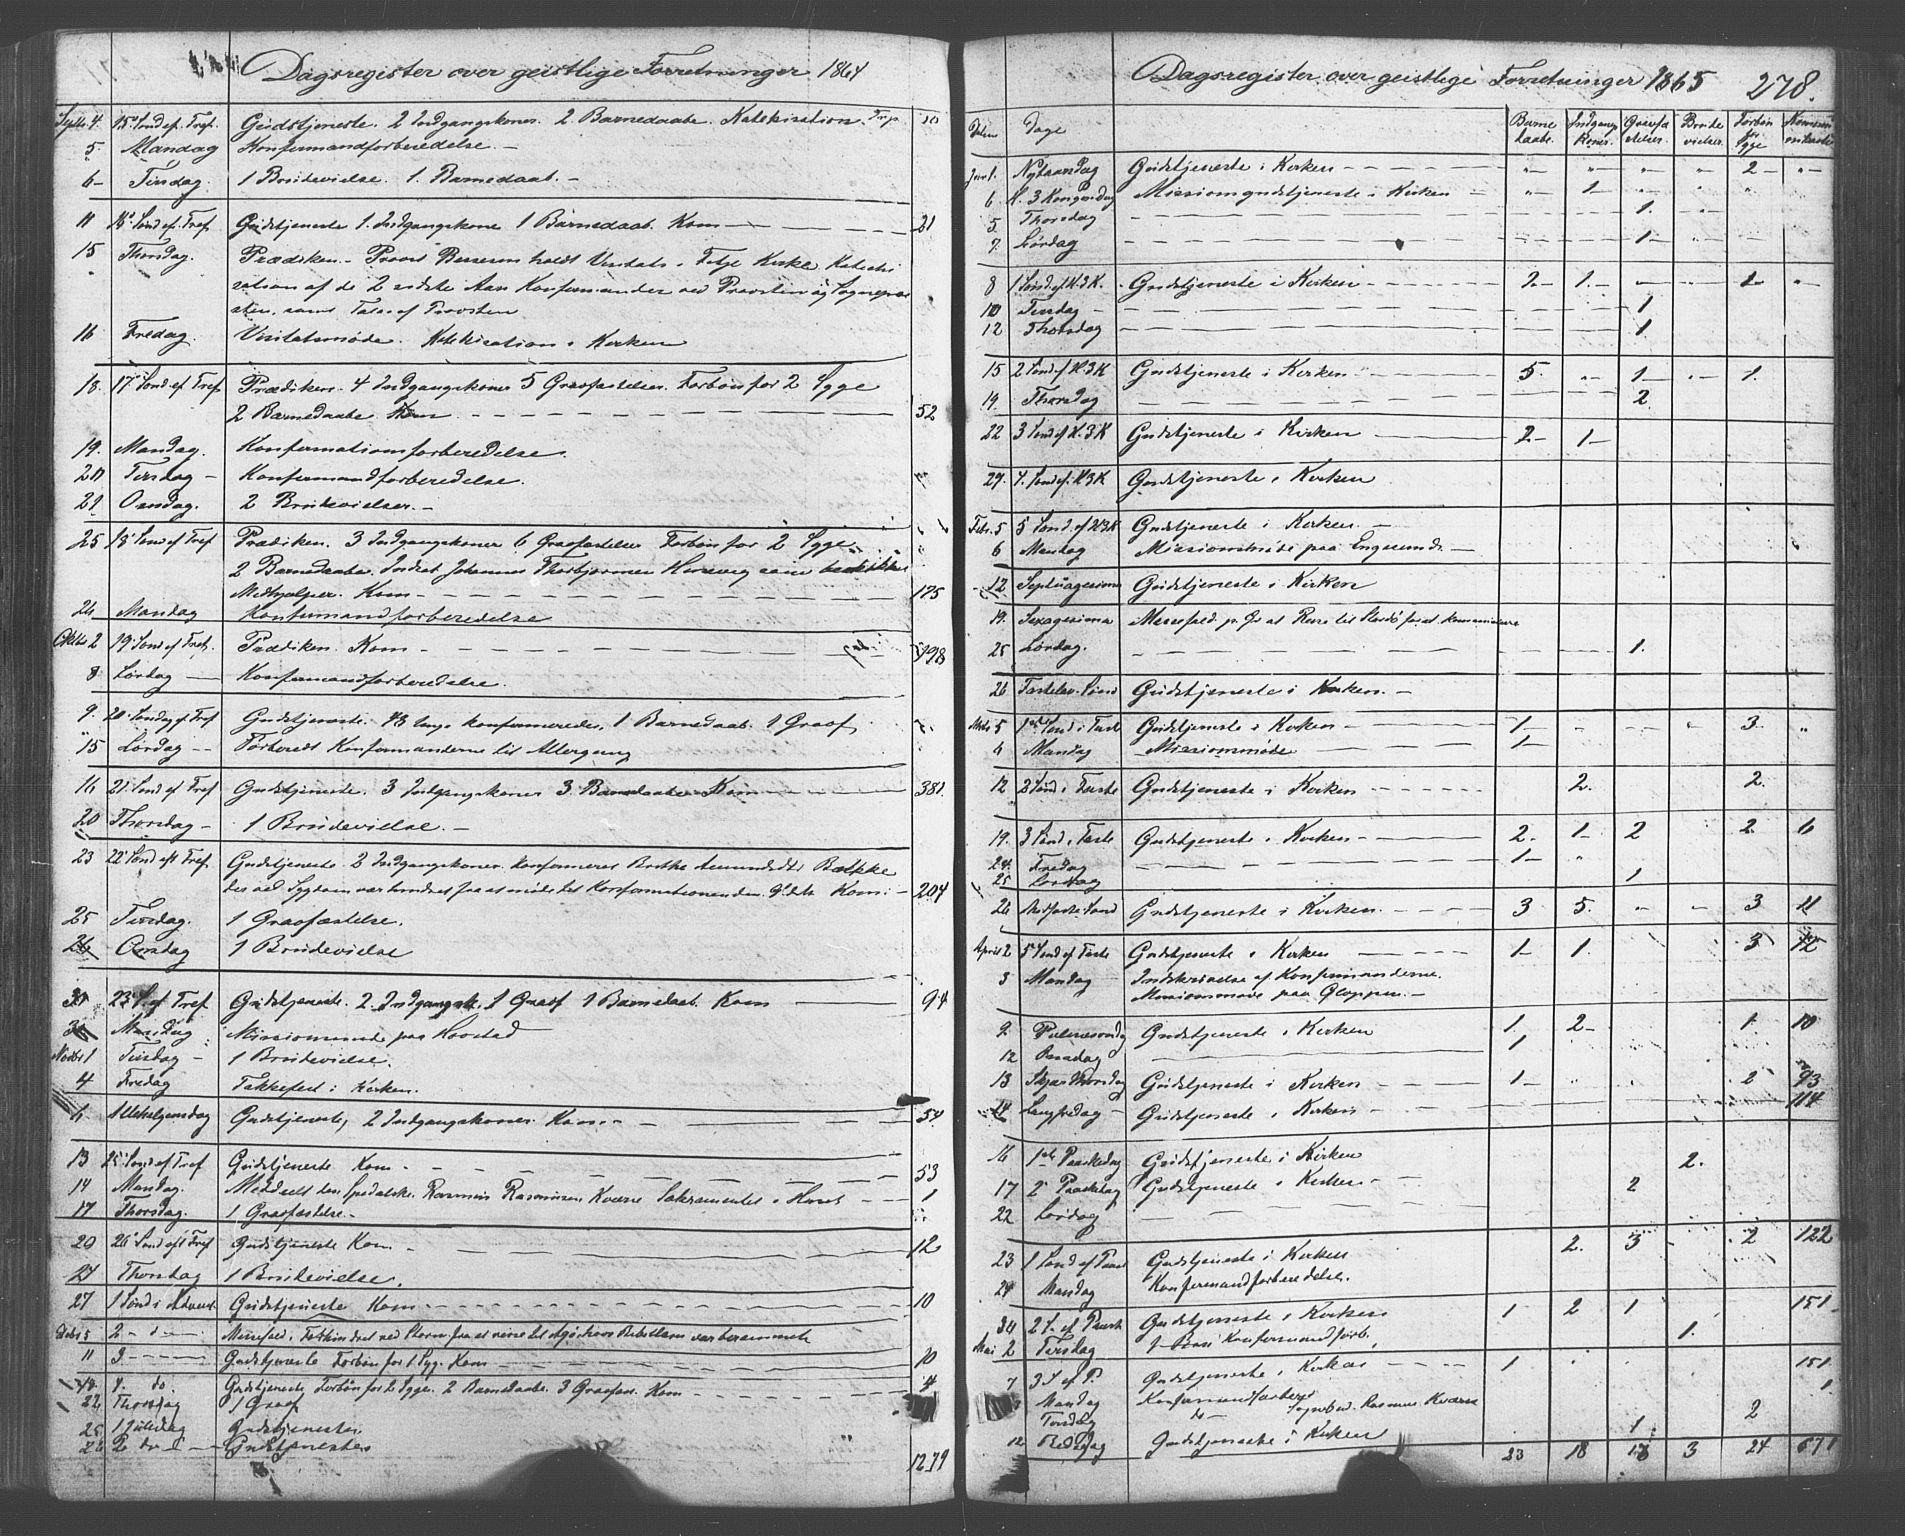 Dagsregister over geistlige Forretninger 1864
Septbr 4 15de Sønd ef. Tref. Gudstjeneste. 2 Indgangskoner. 2 Barnedaabe. Katekisation.
5. Mandag Konfirmandforberedelse. –
6 – Tirsdag. 1 Brudevielse. 1. Barnedaab. –
11 16de Sønd ef. Tref. Gudstjeneste 1. Indgangskone 1 Barnedaab. Kom — 21
15 Thorsdag. Prædiken. – Provst holdt Visitats i Kirke Katechi
sation af de 2 sidste Aars Konfirmander ved Provsten og Sognepræ
sten, samt Tale af Provsten
16 Fredag. Visitatsmøde. Katekisation i Kirken
18. 17de Sønd ef Tref Prædiken. 4 Indgangskoner 5 Gravfæstelser. Forbøn for 2 Syge
2 Barnedaabe Kom — 52
19. Mandag. Konfirmationsforberedelse.
20 Tirsdag – Konfirmandforberedelse.
21 Onsdag. 2 Brudevielser. –
25 18de Sønd ef Tref Prædiken. 3 Indgangskoner 6 Gravfæstelser Forbøn for 2 Syge
2 Barnedaabe. Indsat Johannes Thorbjørnsen som
Medhjelper. Kom — 175
26 Mandag Konfirmandforberedelse
Oktbr 2 19de Sønd ef Tref. Prædiken. Kom — 198
8 Lørdag — Konfirmandforberedelse.
9. 20de Søndag ef Tref Gudstjeneste. 43 unge konfirmerede. 1 Barnedaab. 1 Gravf.
15 Lørdag – Forberedt Konfirmanderne til Altergang
16 21de Sønd ef Tref Gudstjeneste. 3 Indgangskoner 3 Barnedaabe Kom — 381.
20 Thorsdag – 1 Brudevielse. –
23 22de Sønd eft Tref. Gudstjeneste 2 Indgangskoner. Konfirmeres Brithe
der ved Sygdom var hindret fra at møde til Konfirmationen den 9de dets Kom: – 204
25 Tirsdag. 1 Gravfæstelse.
26 Onsdag 1 Brudevielse
30 23de S. ef Tref Gudstjeneste. 2 Indgangsk. 1 Gravf 1 Barnedaab. Kom — 94
31 Mandag Missionsmøde paa Hovstad
Novbr 1 Tirsdag – 1 Brudevielse.
4 Fredag Takkefest i Kirken.
6. Allehelgensdag Gudstjeneste, 2 Indgangskoner Kom. — 54
13 25de Sønd ef Tref Gudstjeneste Kom — 53
14 Mandag. Meddeelt den Spedalske Rasmus Rasmussen Kværne Sakramentet i Huset — 1
17 Thorsdag. 1 Gravfæstelse –
20 26de Sønd eft Tref Gudstjeneste Kom. — 12
Thorsdag 1 Brudevielse.
27 1 Sønd i Advent Gudstjeneste Kom — 10
Debr 5 2 – d — Messefald. Forhindret ved Storm fra at reise til
11 3 — Gudstjeneste Forbøn for 1 Syg. Kom — 10
18. 4. do. Gudstjeneste Forbøn for 2 Syge. 2 Barnedaabe. 3 Gravfæs. Kom — 4
22 Thorsdag 1 Gravf
25 1 Juledag Gudstjeneste.
26 2 do d – Gudstjeneste
1279
Dagsregister over geistlige Forretninger 1865 278.
Datum Dage Barne daabe. Indgang koner. Gravfæ stelser. Brude vielser. Forbøn for Syge
Janr 1. Nytaarsdag Gudstjeneste i Kirken — 2
6 H. 3 Kongersdag Missionsgudstjeneste i Kirken — 1
5. Thorsdag — 1.
7. Lørdag — 1
8 1 Sønd ef H. 3 K. Gudstjeneste i Kirken — 2 1 1
10 Tirsdag — 1
12 Thorsdag — 1.
15 2 Sønd ef H. 3 K Gudstjeneste i Kirken — 5. 1 1.
19. Thorsdag — 2.
22 3 Sønd ef H. 3 K Gudstjeneste i Kirken — 2 1
29. 4. Sønd ef. H 3 K Gudstjeneste i Kirken
Febr. 5 5 Sønd. ef H 3 K Gudstjeneste i Kirken. –
6 Mandag Missionsmøde paa —
12 Septuagesima Gudstjeneste i Kirken
19. Sexagesima Messefald
25 Lørdag. — 1.
26 Fastelav. Sønd Gudstjeneste i Kirken. –
Marts 5 1ste Sønd i Faste Gudstjeneste i Kirken — 1 3.
6 Mandag Missionsmøde 1
12 2 Sønd i Faste Gudstjeneste i Kirken — 2. 2.
19. 3 Sønd i Faste Gudstjeneste i Kirken — 2. 1 2 2. 6
24. Fredag — 1
25 Lørdag — 1
26 Midfaste Sønd Gudstjeneste i Kirken. — 3 5. 3 11
April 2 5 Sønd ef Faste Gudstjeneste i Kirken — 1 1. 3 12
3 Mandag Indskrivelse af Konfirmanderne.
Missionsmøde paa Gloppen. –
9. Palmesøndg Gudstjeneste i Kirken 1. 2 1. 10
12 Onsdag — 1
13 Skjærthorsdag Gudstjeneste i Kirken — 1 2 93
14 Langfredag – Gudstjeneste i Kirken — 114
16 1ste Paaskedag Gudstjeneste i Kirken 2.
17 2den Paaskedag Gudstjeneste i Kirken — 2
22 Lørdag —
23 1 Sønd ef Paask Gudstjeneste i Kirken 2. 3 2 122
24 Mandag Konfirmandforberedelse.
30 2 S. ef Paask Gudstjeneste i Kirken 1 2 1 151
Mai 2 Tirsdag Konfirmandforb. 1.
7 3 S. ef P. Gudstjeneste i Kirken — 1 151.
Mandag Konfirmandforbered Rasmus Kværne 1
Torsdag do – 2
12 Bededag Gudstjeneste i Kirken 1
23 18 3 24 671